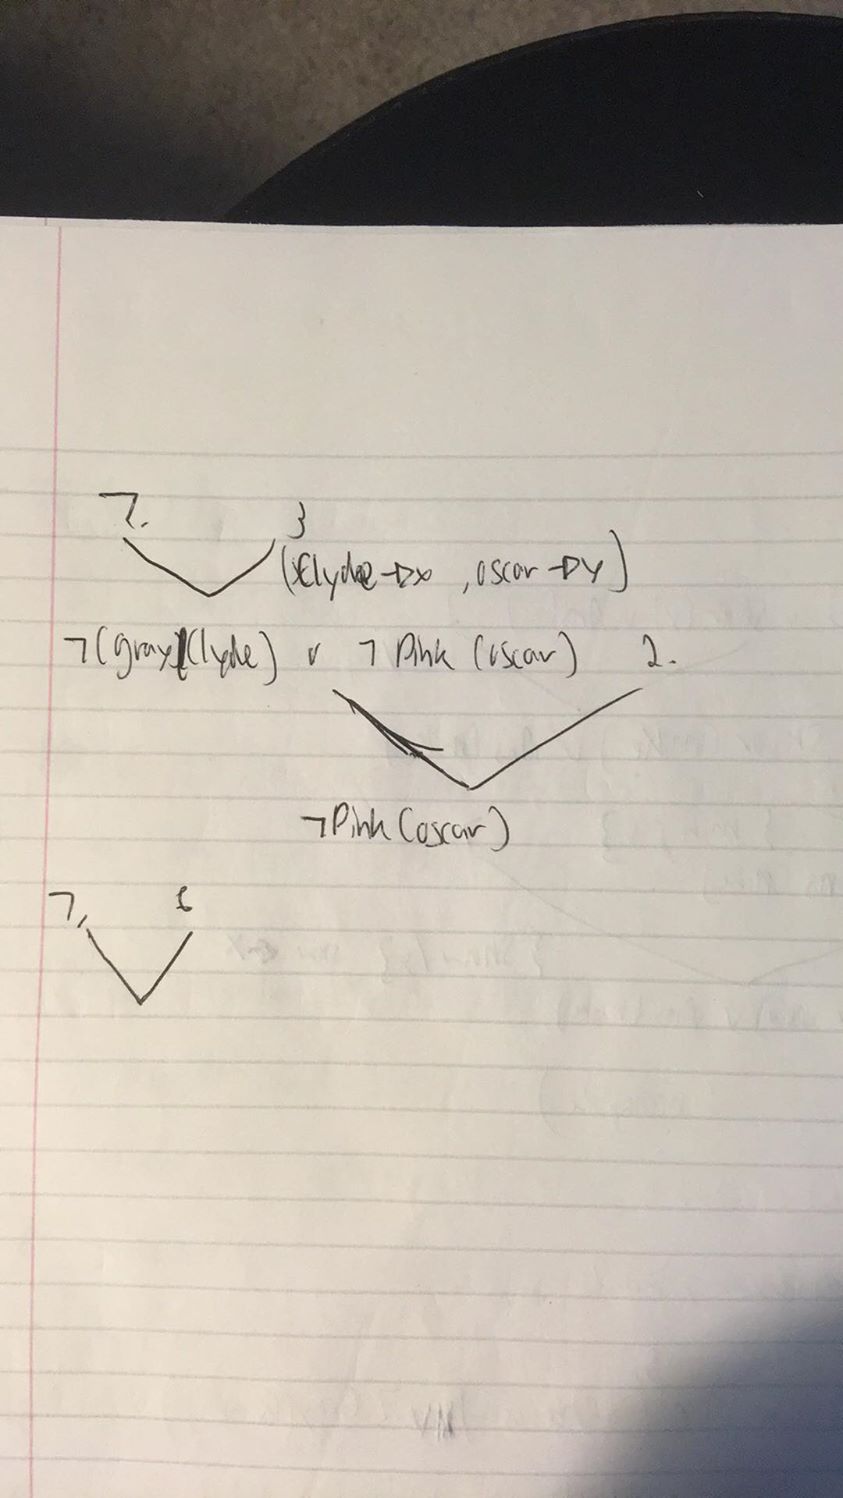 7. 3
(Clyde→x , oscar→y)
¬(Gray(Clyde) v ¬Pink (oscar) 2.
¬Pink (oscar)
7, 6